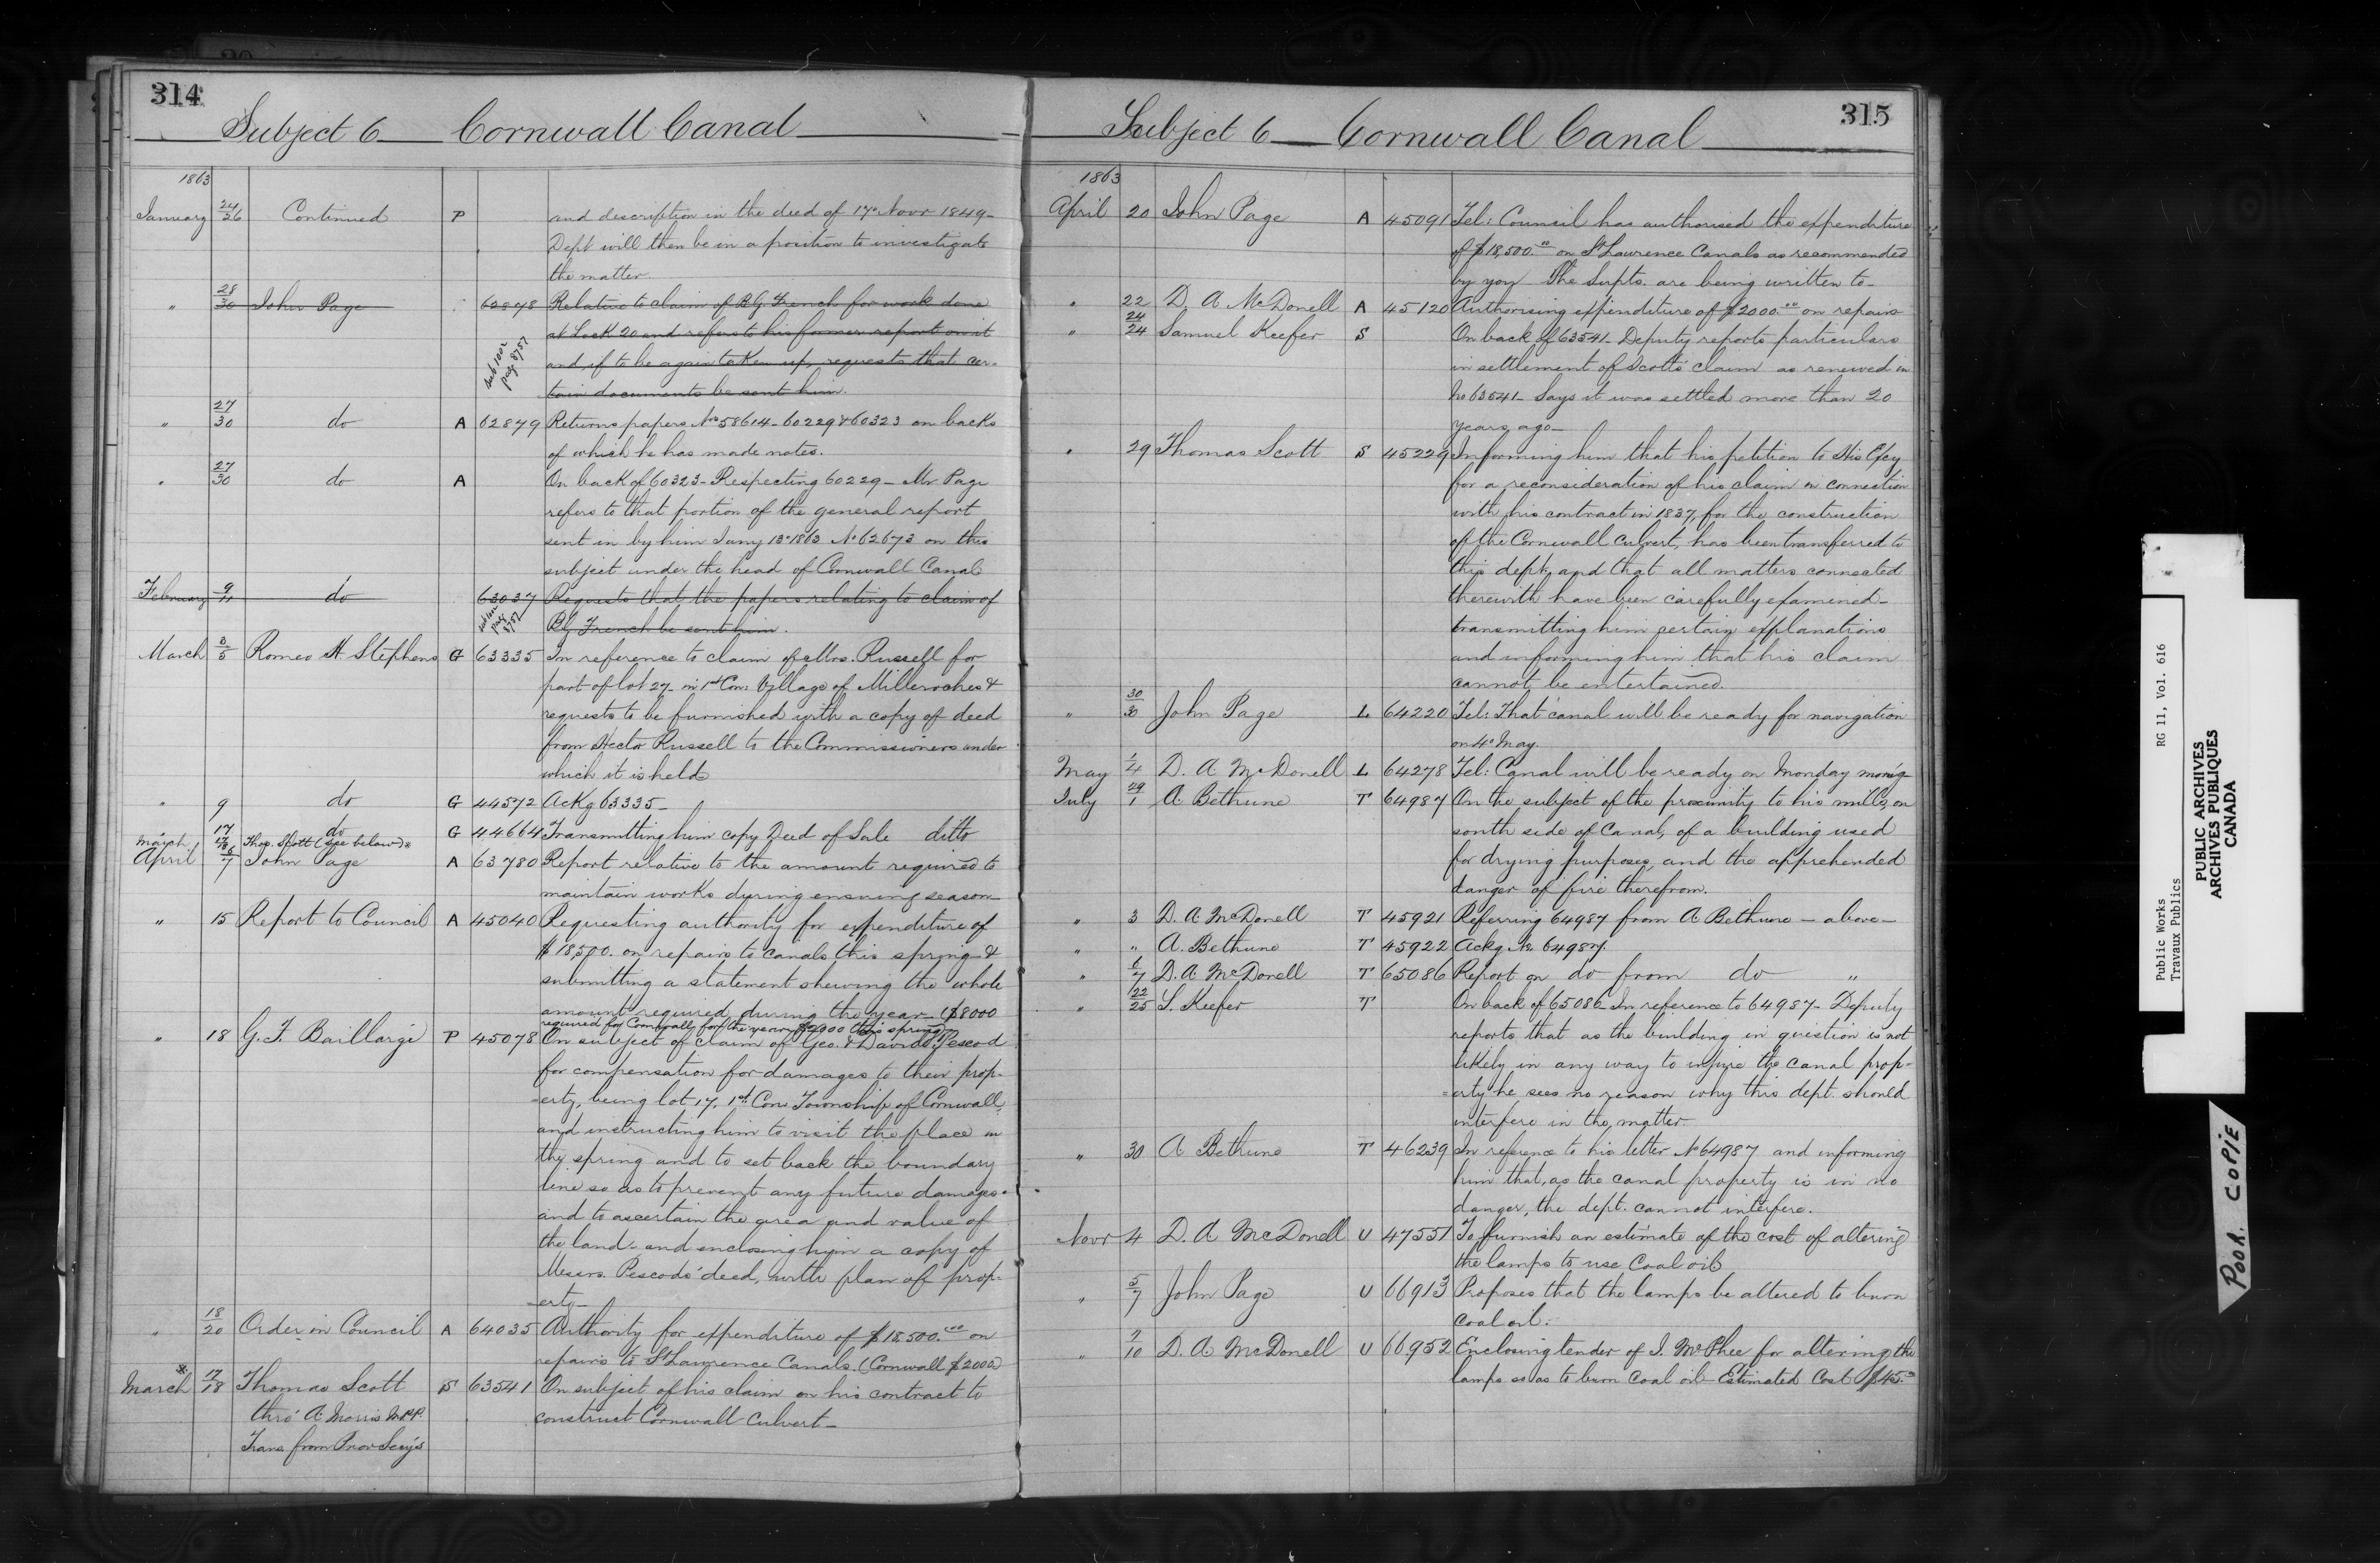 314
Subject 6 Cornwall Canal
1863
January 24/26 Continued P and description in the deed of 17 Novr 1849-
Dept will then be in a position to investigate
the matter.
" 28/30 John Page 62878 Relative to claim of B.G. French for work done
at Lock 20 and refers to his former report on it
and, if to be again taken up, requests that cer-
tain documents be sent him.
sub 1002
page 8757
" 27/30 do A 62879 Returns papers Nos 58614-60229 & 60323 on backs
of which he has made notes.
" 27/30 do A On back of 60323- Respecting 60229- Mr Page
refers to that portion of the general report
sent in by him Jany 13 1863 No 62673 on this
subject under the head of Cornwall Canal
February 9/11 do 63037 Requests that the papers relating to claim of
B.G. French be sent him.
page
8757
March 3/5 Romeo H Stephens G 63335 In reference to claim of Mrs. Russell for
part of lot 27- in 1st Con: Village of Milleroches &
requests to be furnished with a copy of deed
from Hector Russell to the Commissioners under
which it is held
" 9 do G 44572 Ackg 63335-
17 do G 44664 Transmitting him copy Deed of Sale ditto
March 17/18 Thos. Scott (see below)*
April 6/7 John Page A 63780 Report relative to the amount required to
maintain works during ensuing season
" 15 Report to Council A 45040 Requesting authority for expenditure of
$18,500. on repairs to canals this spring &
submitting a statement shewing the whole
amount required during the year- ($8000
required for Cornwall, for the year, $2000 this spring)
" 18 G. F. Baillargé P 45078 On subject of claim of Geo. & David Pescod
for compensation for damages to their prop-
-erty, being lot 17, 1st Con Township of Cornwall,
and instructing him to visit the place in
the spring and to set back the boundary
line so as to prevent any future damages-
and to ascertain the area and value of
the land- and enclosing him a copy of
Messrs. Pescods' deed, with plan of prop-
-erty-
" 18/20 Order in Council A 64035 Authority for expenditure of $18,500.00 on
repairs to St Lawrence Canals. (Cornwall $2000)
* March 17/18 Thomas Scott S 63541 On subject of his claim on his contract to
thro' A. Morris M.P.P. construct Cornwall Culvert-
Trans from Prov Secy's
315
Subject 6 Cornwall Canal
1863
April 20 John Page A 45091 Tel: Council has authorised the expenditure
of $18,500.00 on St Lawrence Canals as recommended
by you The Supts. are being written to-
" 22 D. A McDonell A 45120 Authorising expenditure of $2000.00 on repairs
" 24/24 Samuel Keefer S On back of 63541- Deputy reports particulars
in settlement of Scott's claim as renewed in
No 63541- Says it was settled more than 20
years ago-
" 29 Thomas Scott S 45229 Informing him that his petition to His Excy
for a reconsideration of his claim in connection
with his contract in 1837, for the construction
of the Cornwall Culvert, has been transferred to
this dept. and that all matters connected
therewith have been carefully examined-
transmitting him certain explanations
and informing him that his claim
cannot be entertained.
" 30/30 John Page L 64220 Tel: That canal will be ready for navigation
on 4 May.
May 1/4 D. A McDonell L 64278 Tel: Canal will be ready on Monday morn'g
July 29/1 A Bethune T 64987 On the subject of the proximity to his mills, on
south side of Canal, of a building used
for drying purposes, and the apprehended
danger of fire therefrom.
" 3 D. A McDonell T 45921 Referring 64987 from A Bethune - above-
" " A. Bethune T 45922 Ackg No. 64987.
" 6/7 D. A. McDonell T 65086 Report on do from do "
" 22/25 S. Keefer T On back of 65086- In reference to 64987- Deputy
reports that as the building in question is not
likely in any way to injure the canal prop-
-erty he sees no reason why this dept should
interfere in the matter
" 30 A Bethune T 46239 In reference to his letter No 64987 and informing
him that, as the canal property is in no
danger, the dept. cannot interfere.
Novr 4 D. A McDonell U 47551 To furnish an estimate of the cost of altering
the lamps to use Coal oil
" 5/7 John Page U 66913 Proposes that the lamps be altered to burn
coal oil.
" 7/10 D. A McDonell U 66952 Enclosing tender of J. McPhee for altering the
lamps so as to burn Coal oil- Estimated Cost $45.
Public Works RG 11, Vol. 616
Travaux Publics
PUBLIC ARCHIVES
ARCHIVES PUBLIQUES
CANADA
POOR COPIE